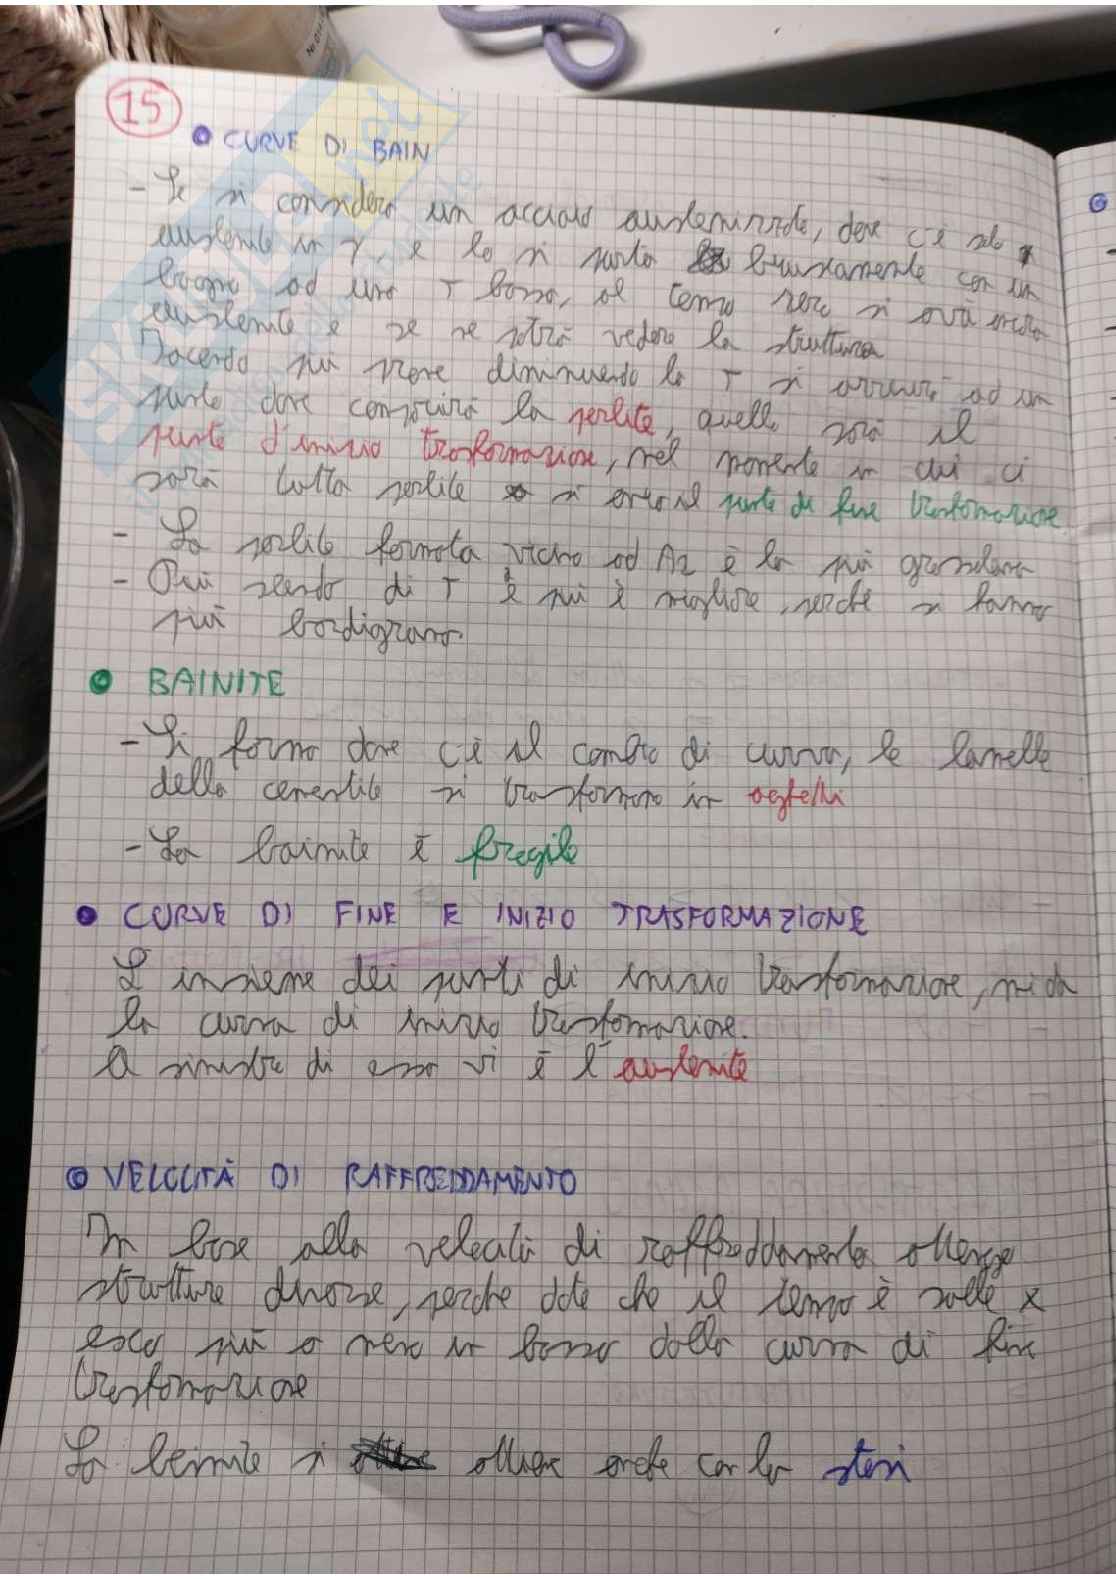 15
CURVE DI BAIN
- Se si considera un acciaio austenizzato, dove c'è solo
austenite in γ, e lo si porta bruscamente con un
bagno ad una T bassa, al tempo zero si avrà ancora
austenite e se ne potrà vedere la struttura
Facendo più prove diminuendo la T si arriverà ad un
punto dove comparirà la perlite, quello sarà il
punto d'inizio trasformazione, nel momento in cui ci
sarà tutta perlite si avrà il punto di fine trasformazione
- La perlite formata vicino ad A1 è la più grossolana
- Più scendo di T e più è migliore, perché si fanno
più bordigrano.
BAINITE
- Si forma dove c'è il cambio di curva, le lamelle
della cementite si trasformano in aghetti
- La bainite è fragile
CURVE DI FINE E INIZIO TRASFORMAZIONE
L'insieme dei punti di inizio trasformazione, mi da
la curva di inizio trasformazione.
A sinistra di essa vi è l'austenite
VELOCITÀ DI RAFFREDDAMENTO
In base alla velocità di raffreddamento ottengo
strutture diverse, perché dato che il tempo è sulle x
esco più o meno in basso dalla curva di fine
trasformazione
La bainite si ottiene anche con la